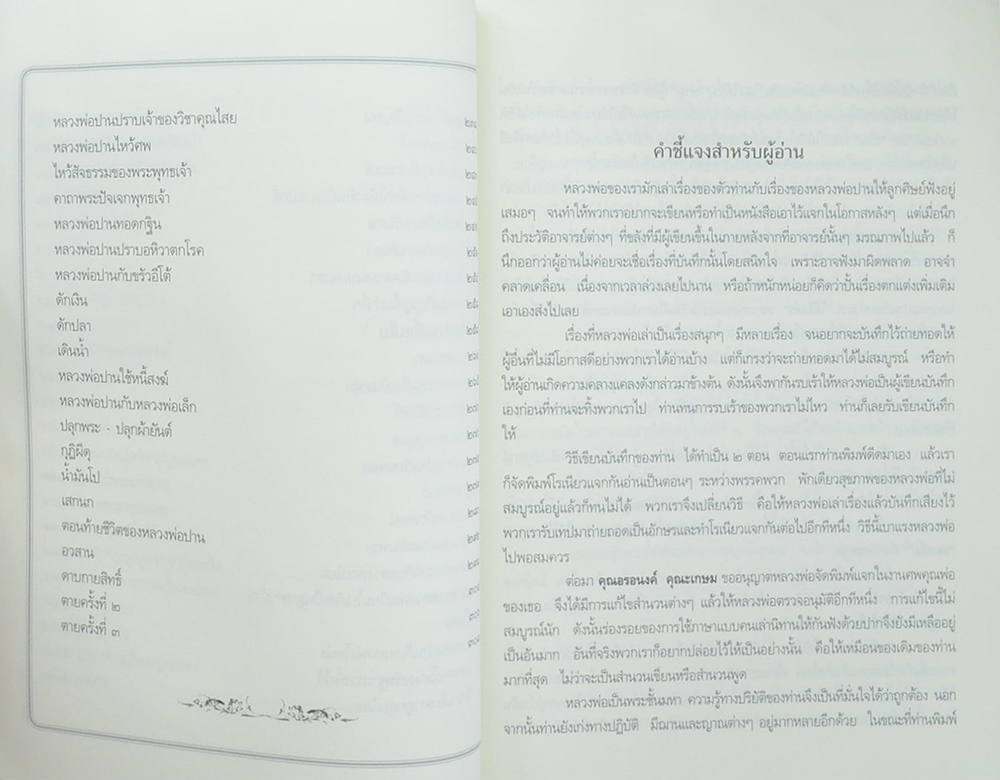 หลวงพ่อปานปราบเจ้าของวิชาคุณไสย
หลวงพ่อปานไหว้ศพ
ไหว้สัจธรรมของพระพุทธเจ้า
คาถาพระปัจเจกพุทธเจ้า
หลวงพ่อปานทอดกฐิน
หลวงพ่อปานปราบอหิวาตกโรค
หลวงพ่อปานกับขรัวอีโต้
ดักเงิน
ดักปลา
เดินน้ำ
หลวงพ่อปานใช้หนี้สงฆ์
หลวงพ่อปานกับหลวงพ่อเล็ก
ปลุกพระ - ปลุกผ้ายันต์
กุฏิผีดุ
น้ำมันโป
เสกนก
ตอนท้ายชีวิตของหลวงพ่อปาน
อวสาน
ดาบกายสิทธิ์
ตายครั้งที่ ๒
ตายครั้งที่ ๓
คำชี้แจงสำหรับผู้อ่าน
หลวงพ่อของเรามักเล่าเรื่องของตัวท่านกับเรื่องของหลวงพ่อปานให้ลูกศิษย์ฟังอยู่
เสมอๆ จนทำให้พวกเราอยากจะเขียนหรือทำเป็นหนังสือเอาไว้แจกในโอกาสหลังๆ แต่เมื่อนึก
ถึงประวัติอาจารย์ต่างๆ ที่ขลังที่มีผู้เขียนขึ้นในภายหลังจากที่อาจารย์นั้นๆ มรณภาพไปแล้ว ก็
นึกออกว่าผู้อ่านไม่ค่อยจะเชื่อเรื่องที่บันทึกนั้นโดยสนิทใจ เพราะอาจฟังมาผิดพลาด อาจจำ
คลาดเคลื่อน เนื่องจากเวลาล่วงเลยไปนาน หรือถ้าหนักหน่อยก็คิดว่าปั้นเรื่องตกแต่งเพิ่มเติม
เอาเองส่งไปเลย
เรื่องที่หลวงพ่อเล่าเป็นเรื่องสนุกๆ มีหลายเรื่อง จนอยากจะบันทึกไว้ถ่ายทอดให้
ผู้อื่นที่ไม่มีโอกาสดีอย่างพวกเราได้อ่านบ้าง แต่ก็เกรงว่าจะถ่ายทอดมาได้ไม่สมบูรณ์ หรือทำ
ให้ผู้อ่านเกิดความคลางแคลงดังกล่าวมาข้างต้น ดังนั้นจึงพากันรบเร้าให้หลวงพ่อเป็นผู้เขียนบันทึก
เองก่อนที่ท่านจะทิ้งพวกเราไป ท่านทนการรบเร้าของพวกเราไม่ไหว ท่านก็เลยรับเขียนบันทึก
ให้
วิธีเขียนบันทึกของท่าน ได้ทำเป็น ๒ ตอน ตอนแรกท่านพิมพ์ดีดมาเอง แล้วเรา
ก็จัดพิมพ์โรเนียวแจกกันอ่านเป็นตอนๆ ระหว่างพรรคพวก พักเดียวสุขภาพของหลวงพ่อที่ไม่
สมบูรณ์อยู่แล้วก็ทนไม่ได้ พวกเราจึงเปลี่ยนวิธี คือให้หลวงพ่อเล่าเรื่องแล้วบันทึกเสียงไว้
พวกเรารับเทปมาถ่ายถอดเป็นอักษรและทำโรเนียวแจกกันต่อไปอีกทีหนึ่ง วิธีนี้เบาแรงหลวงพ่อ
ไปพอสมควร
ต่อมา คุณอรอนงค์ คุณะเกษม ขออนุญาตหลวงพ่อจัดพิมพ์แจกในงานศพคุณพ่อ
ของเธอ จึงได้มีการแก้ไขสำนวนต่างๆ แล้วให้หลวงพ่อตรวจอนุมัติอีกทีหนึ่ง การแก้ไขนี้ไม่
สมบูรณ์นัก ดังนั้นร่องรอยของการใช้ภาษาแบบคนเล่านิทานให้กันฟังด้วยปากจึงยังมีเหลืออยู่
เป็นอันมาก อันที่จริงพวกเราก็อยากปล่อยไว้ให้เป็นอย่างนั้น คือให้เหมือนของเดิมของท่าน
มากที่สุด ไม่ว่าจะเป็นสำนวนเขียนหรือสำนวนพูด
หลวงพ่อเป็นพระชั้นมหา ความรู้ทางปริยัติของท่านจึงเป็นที่มั่นใจได้ว่าถูกต้อง นอก
จากนั้นท่านยังเก่งทางปฏิบัติ มีฌานและญาณต่างๆ อยู่มากหลายอีกด้วย ในขณะที่ท่านพิมพ์